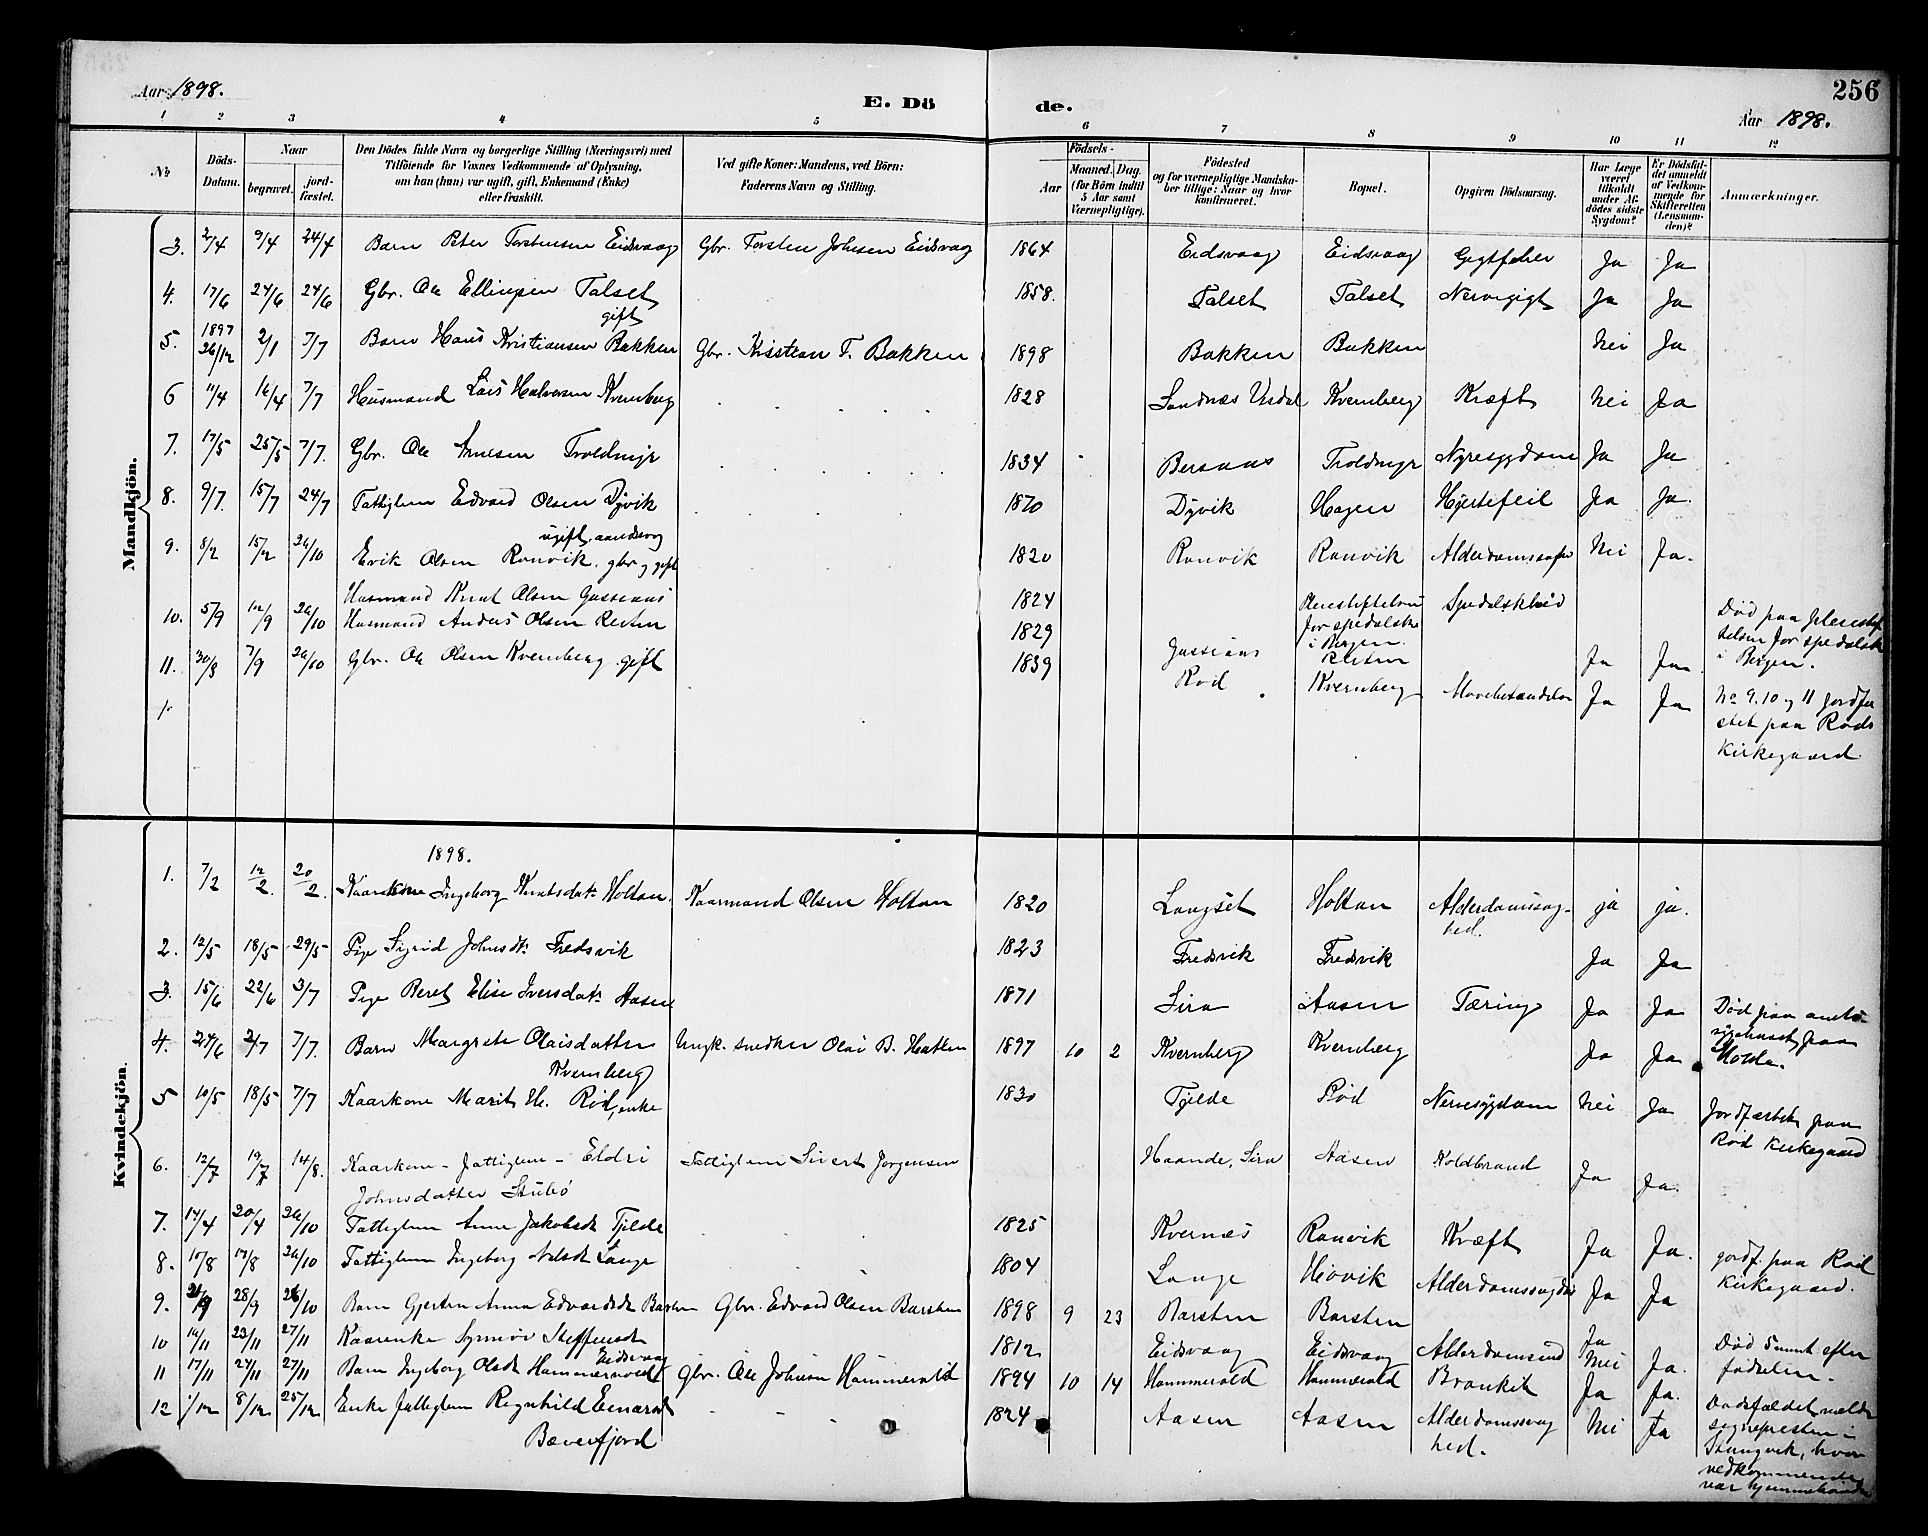 Aar 1898.
E. Dö
de.
256
Aar 1898.
1 2 3 4 5 6 7 8 9 10 11 12
No
Döds-Datum.
Naar
begravet.
jordfæstet.
Den Dödes fulde Navn og borgerlige Stilling (Næringsvei) med
Tilföiende for Voxnes Vedkommende af Oplysning,
om han (hun) var ugift, gift, Enkemand (Enke)
eller fraskilt.
Ved gifte Koner: Mandens, ved Börn:
Faderens Navn og Stilling.
Födsels-
Aar
Maaned. Dag.
(for Börn indtil
5 Aar samt
Værnepligtige).
Födested
og for værnepligtige Mandskaber tillige: Naar og hvor
konfirmeret.
Bopæl.
Opgiven Dödsaarsag.
Har Læge
været
tilkaldt
under Afdödes sidste
Sygdom?
Er Dödsfaldet anmeldt
af Vedkommende for
Skifteretten
(Lensmanden)?
Anmærkninger.
Mandkjön.
3. 2/4 9/4 24/4 Barn Peter Torstensen Eidsvaag Gbr. Torsten Johnsen Eidsvaag 1864 Eidsvaag Eidsvaag Gigtfeber Ja Ja
4. 17/6 24/6 24/6 Gbr. Ole Ellingsen Talset gift 1858. Talset Talset Nervegigt Ja Ja
5. 1897 26/12 2/1 3/7 Barn Hans Kristiansen Bakken Gbr. Kristian T. Bakken 1898 Bakken Bakken Nei Ja
6 11/4 16/4 7/7 Husmand Lars Halvorsen Kvernberg 1828 Sandnæs Kvernberg Kræft Nei Ja
7. 17/5 25/5 7/7. Gbr. Ole Arnesen Troldmyr 1834 Troldmyr Nyresygdom Ja Ja
8. 9/7. 15/7 24/7 Fattiglem Edvard Olsen Dyvik 1870 Dyvik Hagen Hjertefeil Ja Ja.
ugift, aandssvag
9. 8/2 15/2 26/10 Erik Olsen Ranvik. gbr og gift 1820 Ranvik Ranvik Nei Ja.
Husmand Knut Olsen 1824 Pleiestiftelsen for spedalske i Bergen. Spedalskhed Død paa Pleiestiftelsen for spedalske i Bergen.
10. 5/9 12/9 26/10 Husmand Anders Olsen 1829 Ja Ja
11. 30/8 7/9 26/10 Gbr. Ole Olsen Kvernberg gift 1839 Rød Kvernberg Ja Ja No 9, 10 og 11 jordfæstet paa Røds Kirkegaard
Kvindekjön.
1898.
1. 7/2 12/2. 20/2. Kaarkone Ingeborg Knutsdt. Holtan. Kaarmand Olsen Holtan 1820 Langset Holtan Alderdomssvaghed. ja ja.
2. 12/5 18/5 29/5 Pige Sigrid Johnsdt. Fredsvik 1823 Fredsvik Fredsvik Ja Ja
3. 15/6 22/6 3/7 Pige Beret Elise Iversdatr. Aasen 1871 Sira Aasen Tæring Ja Ja Død paa amtssygehuset paa Molde.
4. 24/6 2/7 7/7. Barn Margrete Olaisdatter Kvernberg Ungk. snedker Olai B. Hatlen 1897 10 2 Kvernberg Kvernberg Ja Ja
5 10/5 18/5 7/7 Kaarkone Marit Rød, enke 1830 Tjelde Rød Nervesygdom Nei Ja Jordfæstet paa Rød Kirkegaard
6. 12/7 19/7 14/8. Kaarkone - fattiglem - Eldri Johnsdatter Stubø Fattiglem Sivert Jørgensen Haande, Sira Aasen Koldbrand Ja Ja.
7. 14/4 20/4 26/10 Fattiglem Anne Jakobsdt Tjelde 1825 Kvernæs Ranvik Kræft Ja Ja.
8. 10/8 17/8 26/10 Fattiglem Ingeborg Nilsdt Lange 1804 Lange Ja Ja jordf. paa Rød Kirkegaard.
9. 28/9 26/10 Barn Gjertru Anna Edvardsdt Barsten Gbr. Edvard Olsen Barsten 1898 9 23 Barsten Barsten
10 16/11 23/11 27/11 Kaarenke Synnøv Steffensdt Eidsvaag 1812 Eidsvaag Eidsvaag Ja Nei Ja. Død 5 mnt efter fødselen.
11 17/11 24/11 27/11 Barn Ingeborg Olsdt Hammervold Gbr. Ole Johnsen Hammervold 1894 10 14 Hammervold Hammervold Bronkit Ja Ja.
12 1/12 8/12 25/12 Enke fattiglem Ragnhild Einarsdt Bæverfjord 1824 Aasen Aasen Alderdomssvaghed. Nei Ja Dødsfaldet meldt sognepresten i Stangvik, hvor vedkommende var hjemmehørende